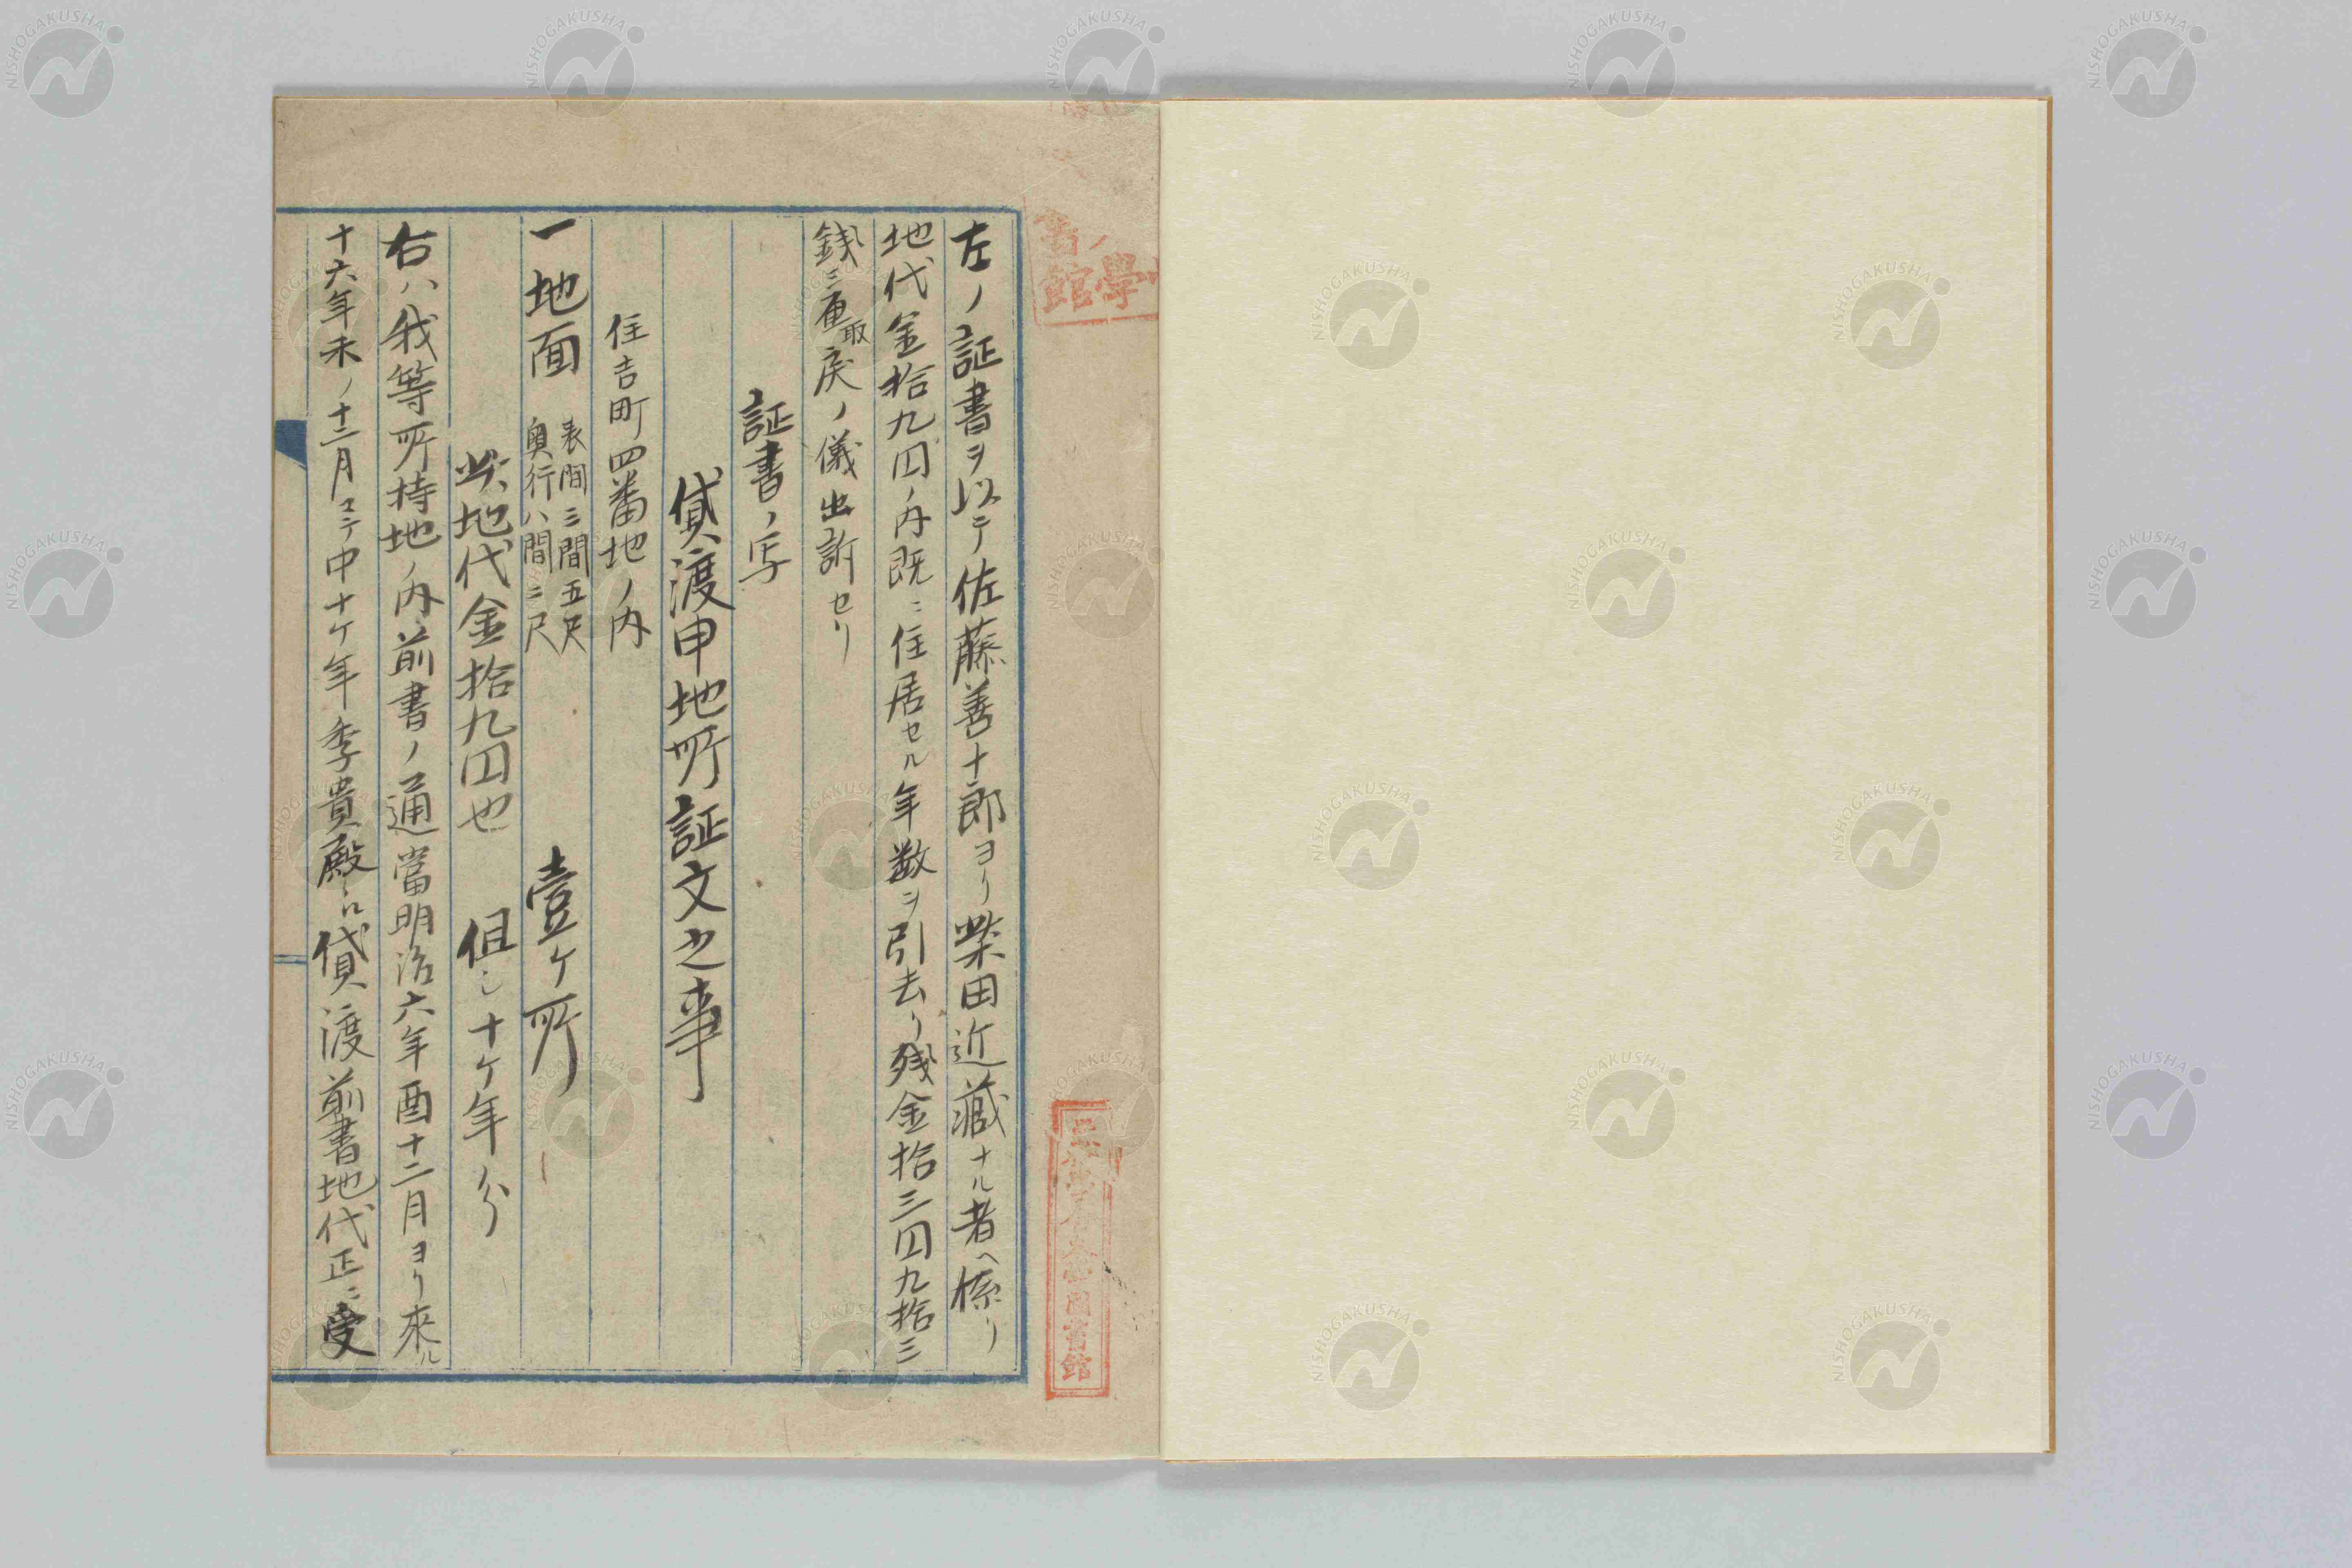 左ノ証書ヲ以テ佐藤善十郎ヨリ柴田近蔵ナル者ヘ係リ
地代金拾九円ノ内既ニ住居セル年数ヲ引去リ残金拾三円九拾三
銭三厘取戻ノ儀出訴セリ
証書ノ写
貸渡申地所証文之事
住吉町四番地ノ内
一地面 表間三間五尺 奥行八間二尺 壹ケ所
此地代金拾九円也 但シ十ケ年ノ分
右ハ我等所持地ノ内前書ノ通當明治六年酉十二月ヨリ來ル
十六年未ノ十二月マテ中十ケ年季貴殿ニ貸渡前書地代正ニ受
學
館
圖書館
NISHOGAKUSHA